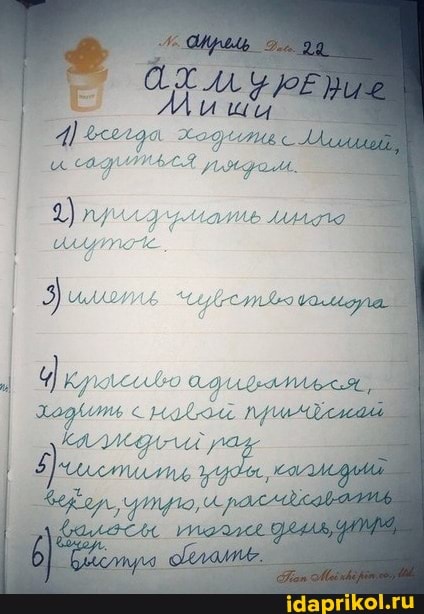 No. апрель Date. 22
ахмурение
Миши
1) всегда ходить с Мишей,
и садиться рядом.
2) придумать много
шуток.
3) иметь чувство юмора
4) красиво адиваться,
ходить с новой причёской
каждый раз
5) чистить зубы, каждый
вечер, утро, и расчёсовать
волосы тоже день, утро,
вечер.
6) быстро бегать.
idaprikol.ru